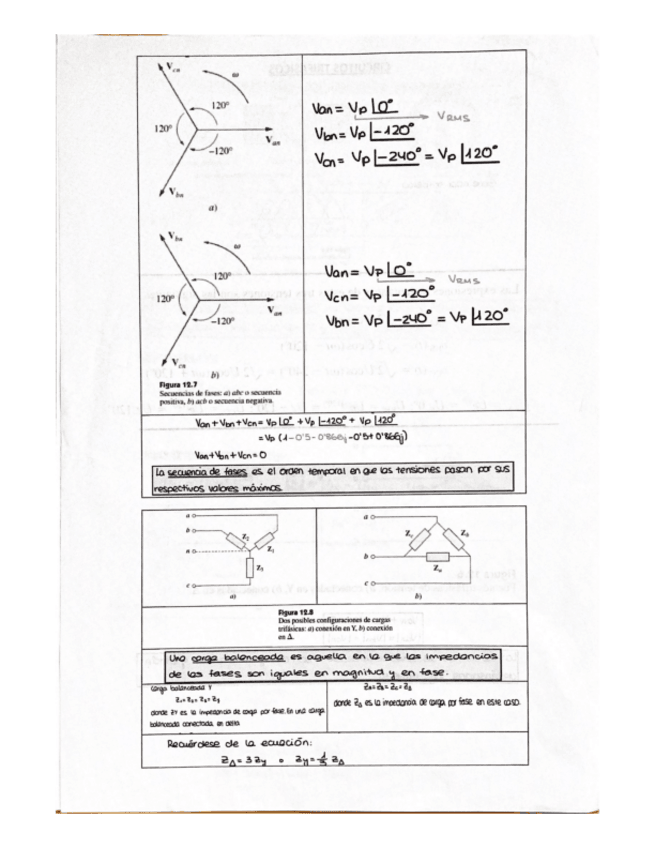 Vcn
ω
120°
120°
-120°
Van
Vbn
a)
Van = Vp ⌊0°
VRMS
Vbn = Vp ⌊-120°
Vcn = Vp ⌊-240° = Vp ⌊120°
Vbn
ω
120°
120°
-120°
Van
Vcn
b)
Figura 12.7
Secuencias de fases: a) abc o secuencia
positiva, b) acb o secuencia negativa.
Van = Vp ⌊0°
VRMS
Vcn = Vp ⌊-120°
Vbn = Vp ⌊-240° = Vp ⌊120°
Van + Vbn + Vcn = Vp ⌊0° + Vp ⌊-120° + Vp ⌊120°
= Vp (1-0'5-0'866j-0'5+0'866j)
Van + Vbn + Vcn = 0
La secuencia de fases es el orden temporal en que las tensiones pasan por sus
respectivos valores máximos.
a
b
n
c
Z2
Z1
Z3
a)
a
b
c
Zc
Zb
Za
b)
Figura 12.8
Dos posibles configuraciones de cargas
trifásicas: a) conexión en Y, b) conexión
en Δ.
Una carga balanceada es aquella en la que las impedancias
de las fases son iguales en magnitud y en fase.
Carga balanceada Y
Z1 = Z2 = Z3 = Zy
donde ZY es la impedancia de carga por fase. En una carga
balanceada conectada en delta
Za = Zb = Zc = ZΔ
donde ZΔ es la impedancia de carga por fase en ese caso.
Recuérdese de la ecuación:
ZΔ = 3 Zy o Zy = 1/3 ZΔ